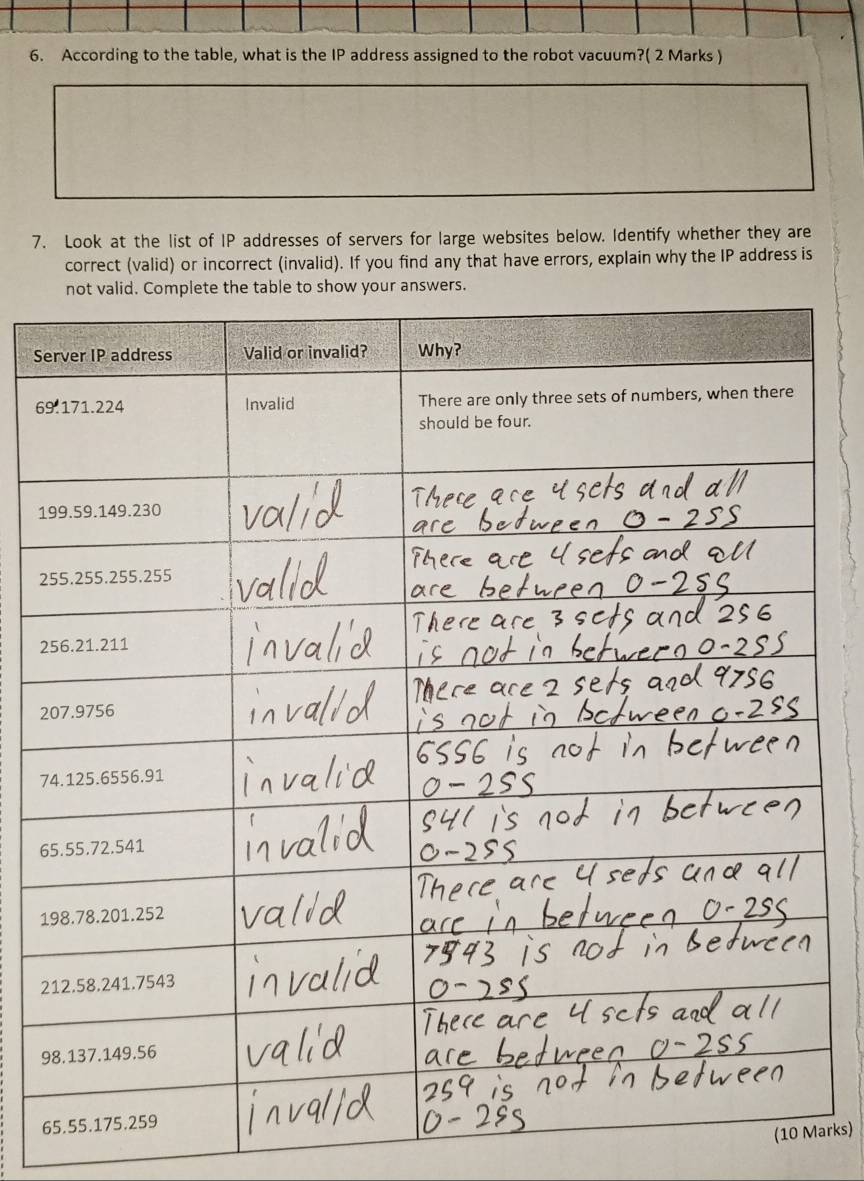 6. According to the table, what is the IP address assigned to the robot vacuum?( 2 Marks )
7. Look at the list of IP addresses of servers for large websites below. Identify whether they are
correct (valid) or incorrect (invalid). If you find any that have errors, explain why the IP address is
not valid. Complete the table to show your answers.
Server IP address Valid or invalid? Why?
69.171.224 Invalid There are only three sets of numbers, when there
should be four.
199.59.149.230 valid There are 4 sets and all
are between 0-255
255.255.255.255 valid There are 4 sets and all
are between 0-255
256.21.211 invalid There are 3 sets and 256
is not in between 0-255
207.9756 invalid There are 2 sets and 9756
is not in between 0-255
74.125.6556.91 invalid 6556 is not in between
0-255
65.55.72.541 invalid 541 is not in between
0-255
198.78.201.252 valid There are 4 sets and all
are in between 0-255
212.58.241.7543 invalid 7543 is not in between
0-255
98.137.149.56 valid There are 4 sets and all
are between 0-255
65.55.175.259 invalid 259 is not in between
0-255
(10 Marks)